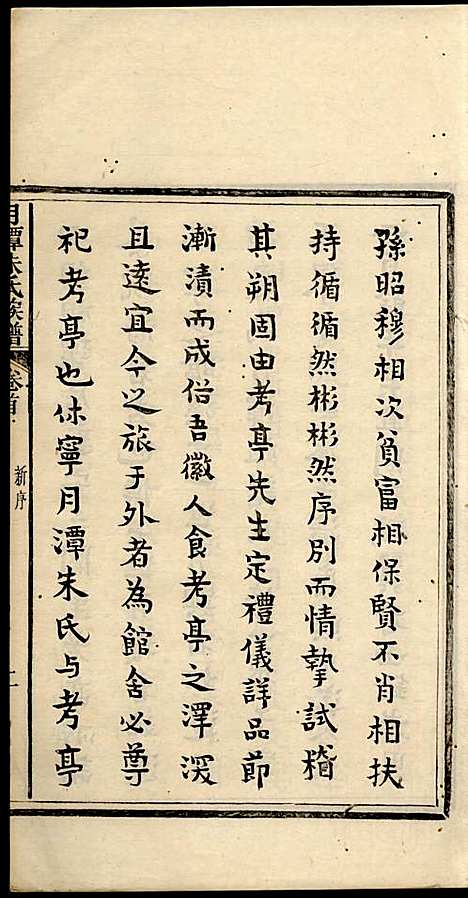 孫昭穆相次貧富相保賢不肖相扶
持循循然彬彬然序別而情摯試稽
其朔固由考亭先生定禮儀詳品節
漸漬而成俗吾徽人食考亭之澤深
且遠宜今之旅于外者為館舍必尊
祀考亭也休寧月潭朱氏與考亭
月潭朱氏族譜
卷首
新序